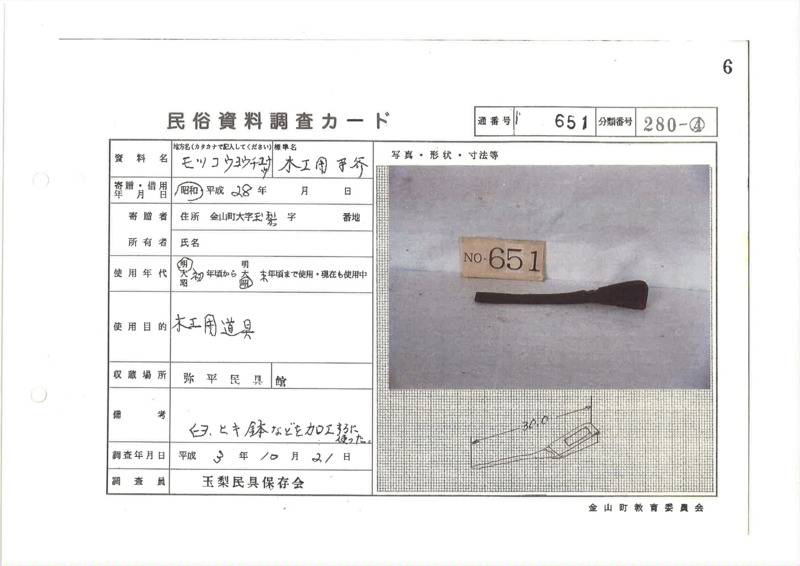 6
民俗資料調査カード
通番号 651 分類番号 280-④
資料名 地方名(カタカナで記入してください) 標準名
モツコウヨウチョウナ 木工用手斧
写真・形状・寸法等
寄贈・借用年月日 昭和・平成 28年 月 日
寄贈者 住所 金山町大字玉梨 字 番地
所有者 氏名
使用年代 明大昭 初年頃から 明大昭 末年頃まで使用・現在も使用中
使用目的 木工用道具
収蔵場所 弥平民具館
備考 臼、ヒキ鉢などを加工するに使った。
調査年月日 平成 3年10月21日
調査員 玉梨民具保存会
NO-651
30.0
金山町教育委員会